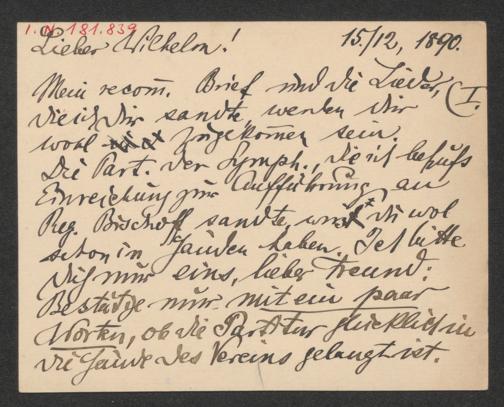 I.N. 181.839
Lieber Wilhelm! 15./12, 1890.
Mein recom. Brief und die Lieder, (I.
die ich Dir sandte, werden Dir
wohl zugekommen sein.
Die Part. der Symph., die ich behufs
Einreichung zur Aufführung an
Reg. Bischoff sandte, wirst Du wol
schon in Händen haben. Ich bitte
Dich nur eins, lieber Freund:
Bestätige nur mit ein paar
Worten, ob die Partitur glücklich in
die Hände des Vereins gelangt ist.